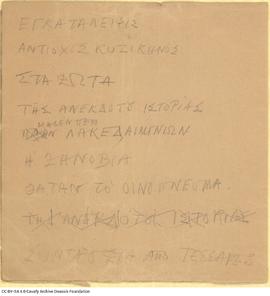 ΕΓΚΑΤΑΛΕΙΨΙΣ
ΑΝΤΙΟΧΟΣ ΚΥΖΙΚΗΝΟΣ
ΣΤΑ
ΤΗΣ ΑΝΕΚΔΟΤΟΥ ΙΣΤΟΡΙΑΣ
ΛΑΚΕΔΑΙΜΟΝΙΩΝ
Η ΖΗΝΟΒΙΑ
ΘΑΤΑΝ ΤΟ ΟΙΝΟΠΝΕΥΜΑ
ΤΗΣ ΑΝΕΚΔΟΤΟΥ ΙΣΤΟΡΙΑΣ
ΣΥΝΤΡΟΦΙΑ ΑΠΟ ΤΕΣΣΑΡΕΣ
CC-BY-SA 4.0 Cavafy Archive Onassis Foundation